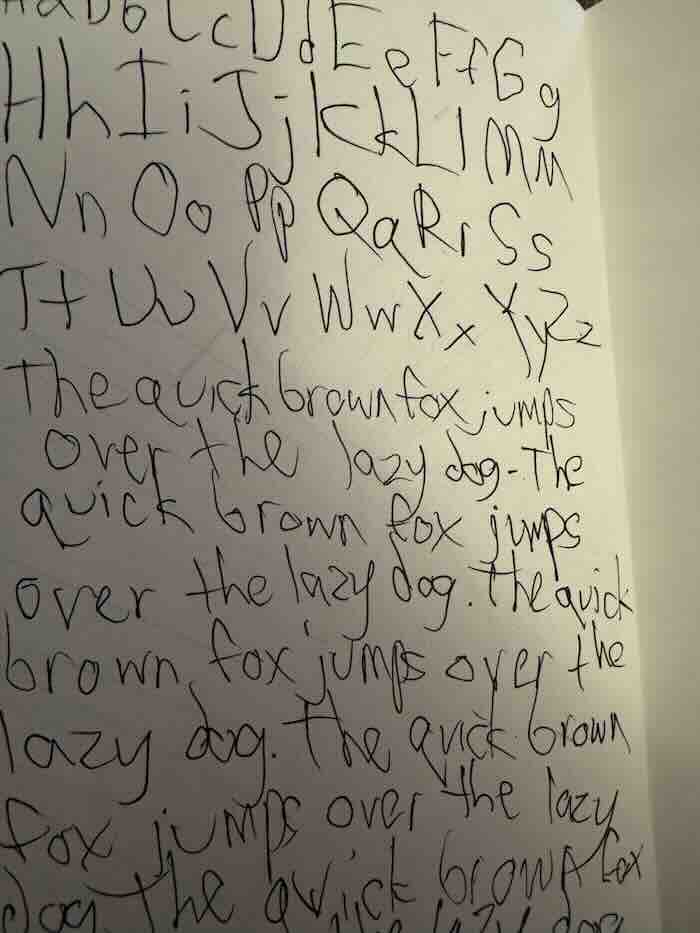 Aa Bb Cc Dd Ee Ff Gg
Hh Ii Jj Kk Ll Mm
Nn Oo Pp Qq Rr Ss
Tt Uu Vv Ww Xx Yy Zz
The quick brown fox jumps
over the lazy dog - The
quick brown fox jumps
over the lazy dog. The quick
brown fox jumps over the
lazy dog. The quick brown
fox jumps over the lazy
dog. The quick brown fox
the lazy dog